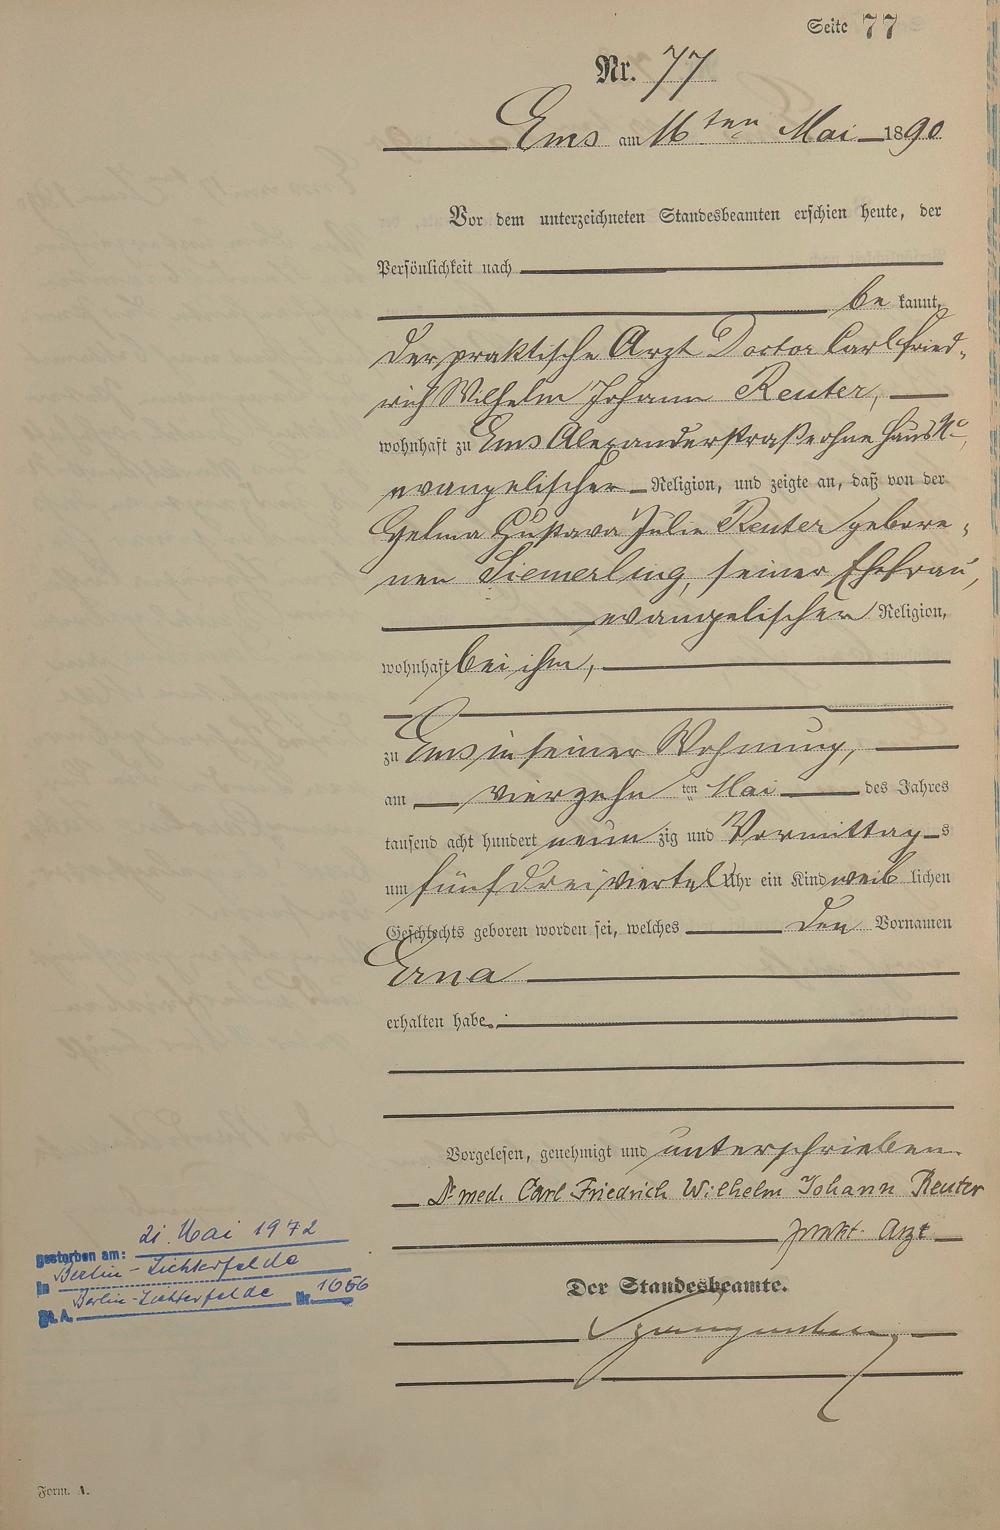 Seite 77
Nr. 77
Ems am 16ten Mai 1890
Vor dem unterzeichneten Standesbeamten erschien heute, der
Persönlichkeit nach
be kannt,
der praktische Arzt Doctor Carl Fried-
rich Wilhelm Johann Reuter,
wohnhaft zu Ems Alexanderstraße ohne Haus No,
evangelischer Religion, und zeigte an, daß von der
Gustava Julie Reuter gebore-
nen Siemerling, seiner Ehefrau,
evangelischer Religion,
wohnhaft bei ihm,
zu Ems in seiner Wohnung,
am vierzehn ten Mai des Jahres
tausend acht hundert neun zig und Vormittag s
um fünf dreiviertel Uhr ein Kind weib lichen
Geschlechts geboren worden sei, welches den Vornamen
Erna
erhalten habe.
Vorgelesen, genehmigt und unterschrieben
Dr med. Carl Friedrich Wilhelm Johann Reuter
prakt. Arzt
Der Standesbeamte.
gestorben am: 21. Mai 1972
in Berlin-Lichterfelde
St. A. Berlin-Lichterfelde Nr. 1056
Form. A.